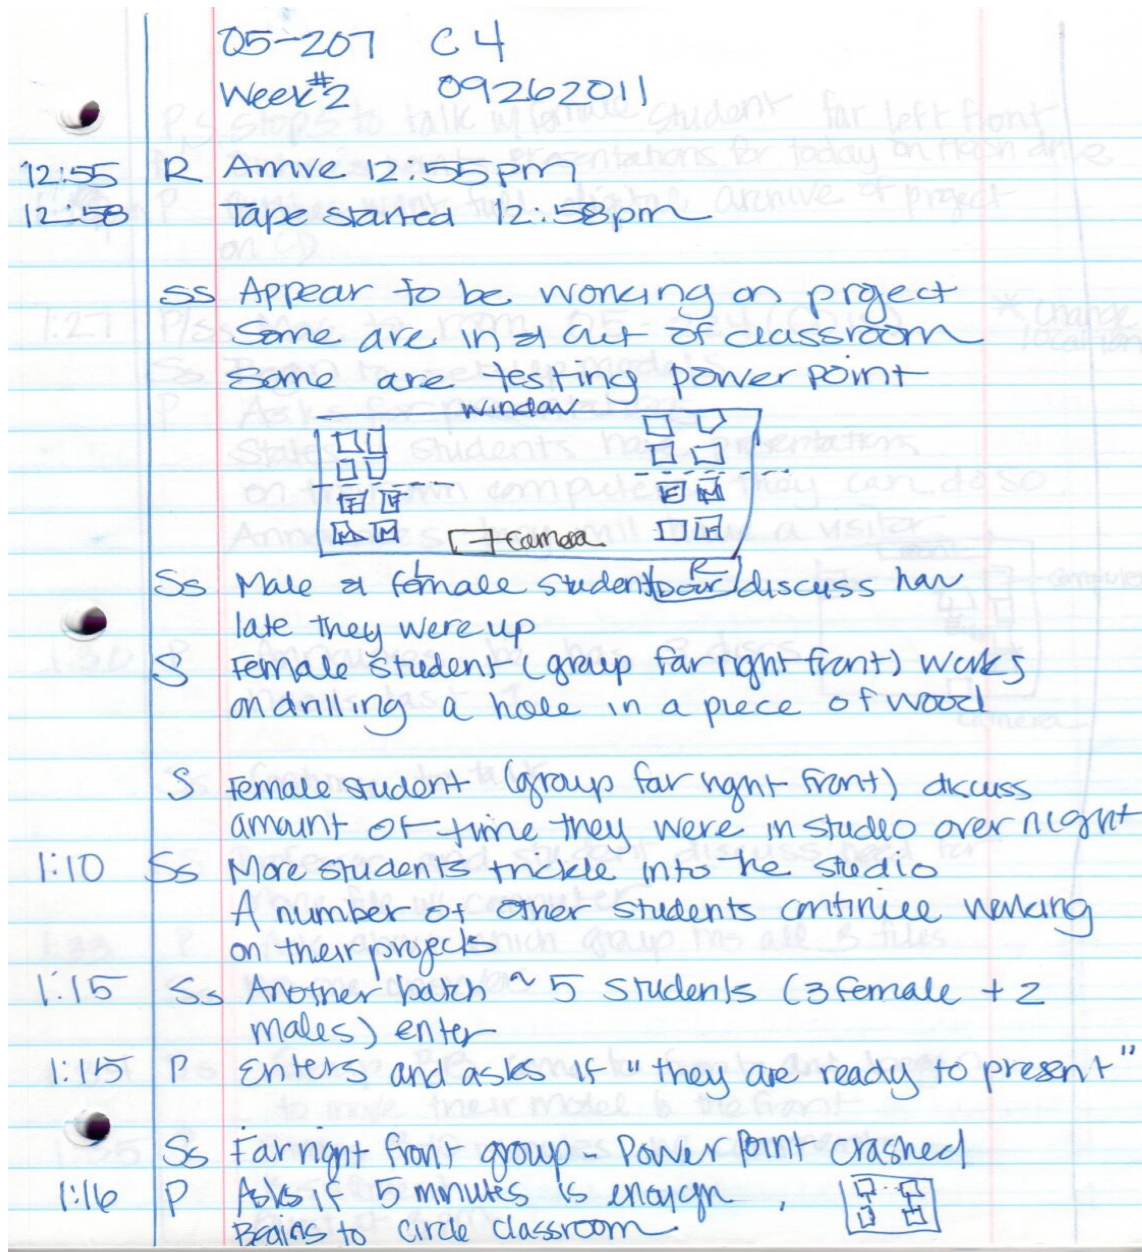 05-207 C4
Week #2 09262011
12:55 R Arrive 12:55pm
12:58 Tape started 12:58pm
Ss Appear to be working on project
Some are in & out of classroom
Some are testing powerpoint
window
F F E M
M M M
camera
L R
door
Ss Male & female student discuss how
late they were up
S Female student (group far right front) works
on drilling a hole in a piece of wood
S Female student (group far right front) discuss
amount of time they were in studio over night
1:10 Ss More students trickle into the studio
A number of other students continue working
on their projects
1:15 Ss Another batch ~ 5 students (3 female + 2
males) enter
1:15 P Enters and asks if "they are ready to present"
Ss Far right front group - Power point crashed
1:16 P Asks if 5 minutes is enough,
Begins to circle classroom